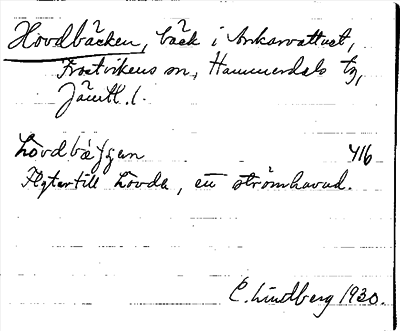 Hovdbäcken, bäck i Ankarvattnet,
Frostvikens sn, Hammerdals tg,
Jämtl. l.
hòvdbæ̀ȷȷan 416
Flyter till hòvda, en strömhavud.
C. Lindberg 1930.